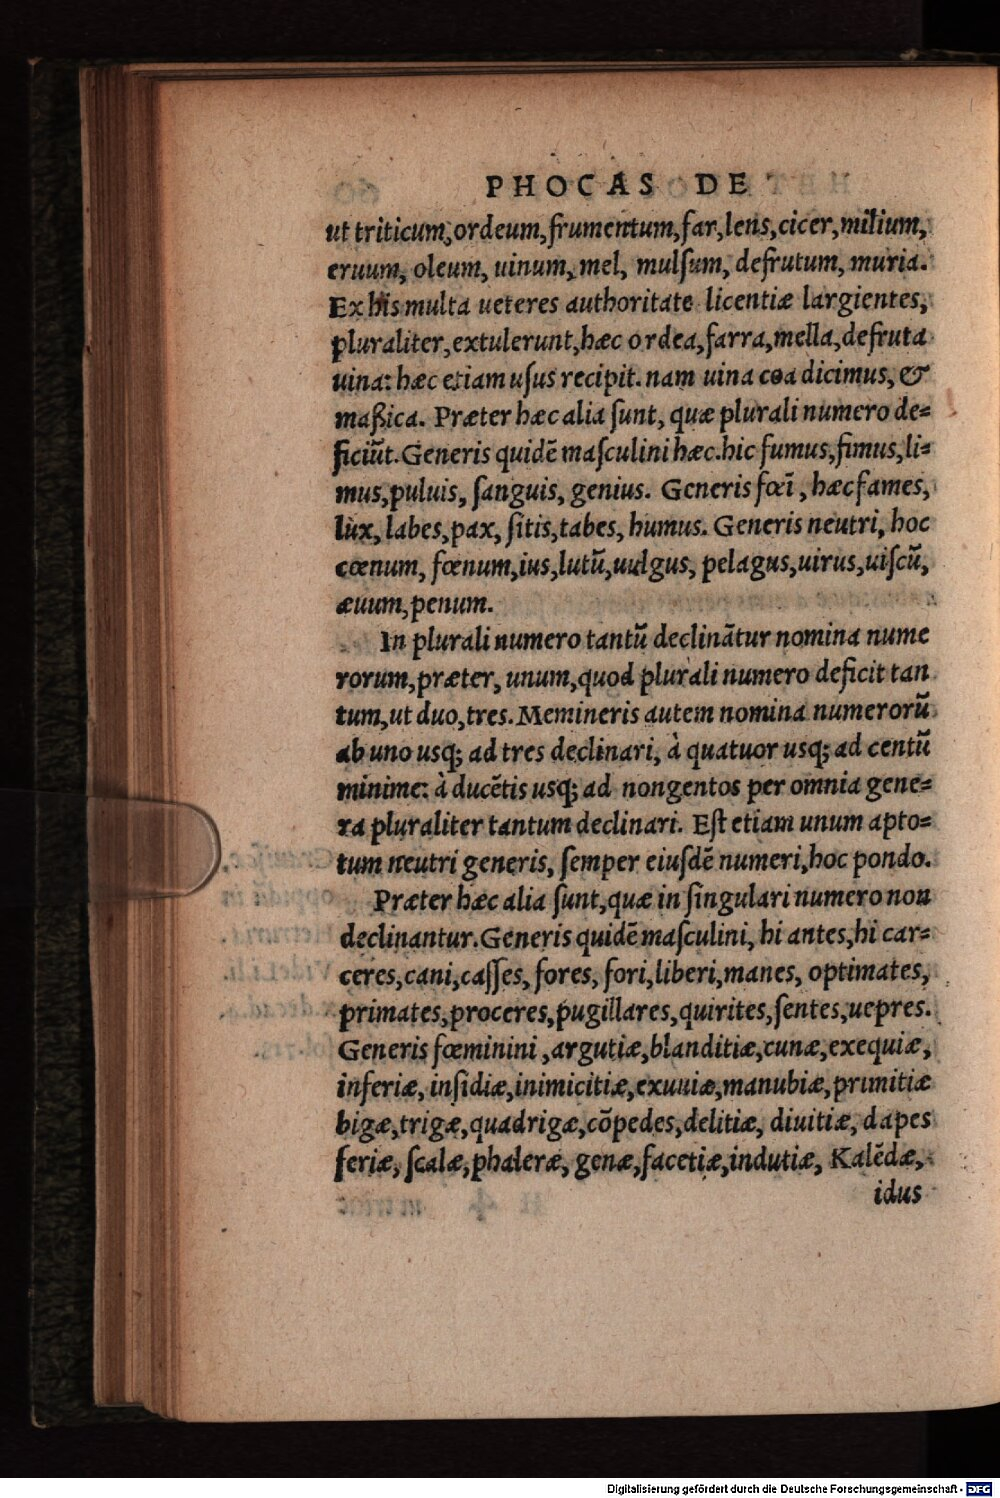 PHOCAS DE
ut triticum, ordeum, frumentum, far, lens, cicer, milium,
eruum, oleum, uinum, mel, mulſum, defrutum, muria.
Ex his multa ueteres authoritate licentiæ largientes,
pluraliter, extulerunt, hæc ordea, farra, mella, defruta
uina: hæc etiam uſus recipit. nam uina coa dicimus, &
maßica. Præter hæc alia ſunt, quæ plurali numero de=
ficiūt. Generis quidē maſculini hæc. hic fumus, fimus, li=
mus, puluis, ſanguis, genius. Generis fœī, hæc fames,
lux, labes, pax, ſitis, tabes, humus. Generis neutri, hoc
cœnum, fœnum, ius, lutū, uulgus, pelagus, uirus, uiſcū,
æuum, penum.
In plurali numero tantū declināтur nomina nume
rorum, præter, unum, quod plurali numero deficit tan
tum, ut duo, tres. Memineris autem nomina numerorū
ab uno usq; ad tres declinari, à quatuor usq; ad centū
minime: à ducētis usq; ad nongentos per omnia gene=
ra pluraliter tantum declinari. Eſt etiam unum apto=
tum neutri generis, ſemper eiuſdē numeri, hoc pondo.
Præter hæc alia ſunt, quæ in ſingulari numero non
declinantur. Generis quidē maſculini, hi antes, hi car=
ceres, cani, caſſes, fores, fori, liberi, manes, optimates,
primates, proceres, pugillares, quirites, ſentes, uepres.
Generis fœminini, argutiæ, blanditiæ, cunæ, exequiæ,
inferiæ, inſidiæ, inimicitiæ, exuuiæ, manubiæ, primitiæ
bigæ, trigæ, quadrigæ, cōpedes, delitiæ, diuitiæ, dapes
feriæ, ſcalæ, phaleræ, genæ, facetiæ, indutiæ, Kalēdæ,
idus
Digitalisierung gefördert durch die Deutsche Forschungsgemeinschaft - DFG